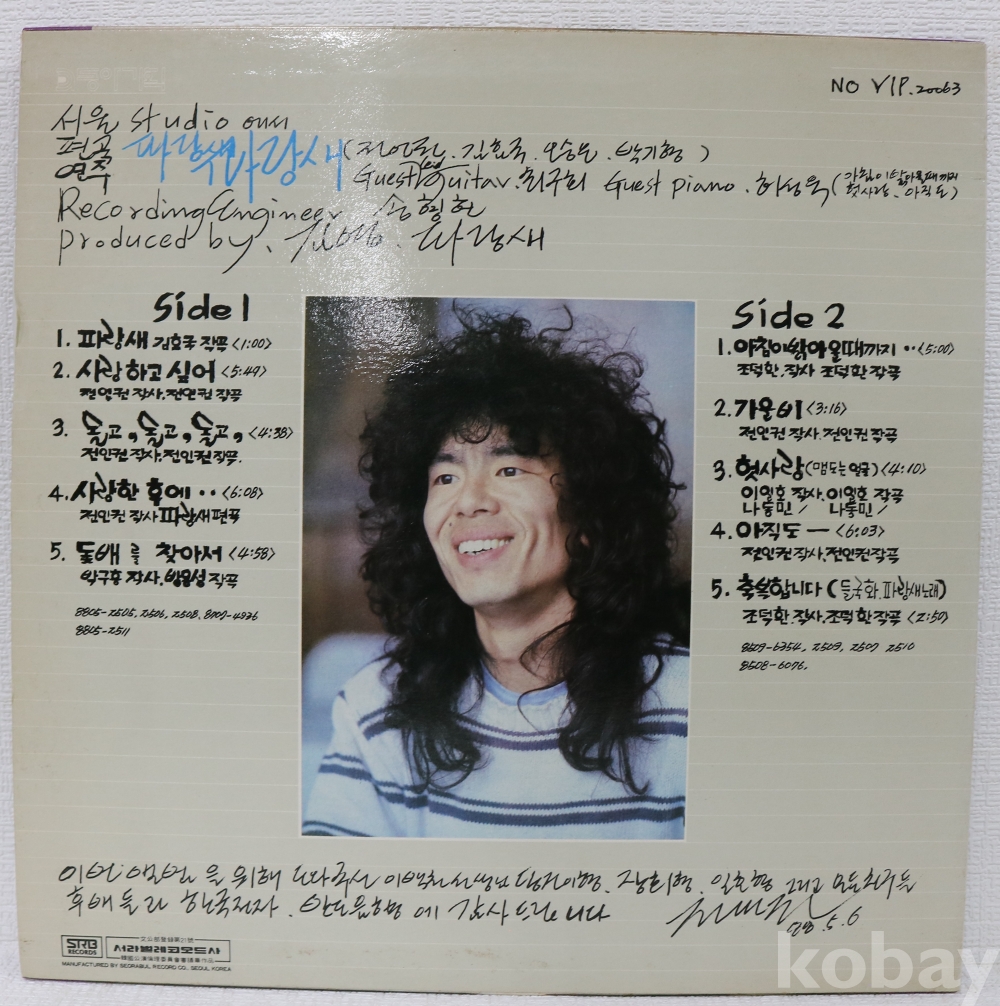 NO VIP.20063
서울 studio 에서
편곡
연주
파랑새
파랑새
(전인권. 김효국. 오승은. 박기형)
Guest guitar. 최구희 Guest piano. 허성욱 (아침이 밝아올때까지
헛사랑. 아직도)
Recording Engineer 송형헌
produced by. 파랑새
Side 1
1. 파랑새 김효국 작곡 <1:00>
2. 사랑하고 싶어 <5:49>
전인권 작사.전인권 작곡
3. 돌고, 돌고, 돌고, <4:38>
전인권 작사.전인권 작곡.
4. 사랑한 후에.. <6:08>
전인권 작사 파랑새 편곡
5. 돛배를 찾아서 <4:58>
작사. 작곡
8805-2505, 2506, 2508, 8707-4936
8805-2511
Side 2
1. 아침이 밝아올때까지.. <5:00>
조덕환.작사 조덕환 작곡
2. 가운비 <3:16>
전인권 작사.전인권 작곡
3. 헛사랑 (맴도는 얼굴) <4:10>
이일호 작사. 이일호 작곡
나동민 나동민
4. 아직도 — <6:03>
전인권 작사.전인권 작곡
5. 축복합니다 (들국화.파랑새노래)
조덕환.작사.조덕환 작곡 <2:50>
8509-6354, 2509, 2507 2510
8508-6076.
이번 앨범을 위해 도와주신 이백천선생님 그리고 모든친구들
후배들과 한국전자. 에 감사드립니다
전인권
88.5.6
SRB
RECORDS
文公部登録第21號
서라벌레코오드사
韓國公演倫理委員會審議畢作品
MANUFACTURED BY SEORABUL RECORD CO., SEOUL KOREA
kobay